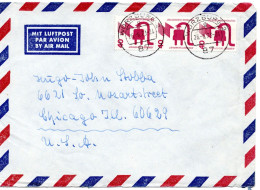 MIT LUFTPOST
PAR AVION
BY AIR MAIL
Mago-John Stobba
6621 So. Mozartstreet
Chicago Ill. 60629
U.S.A.